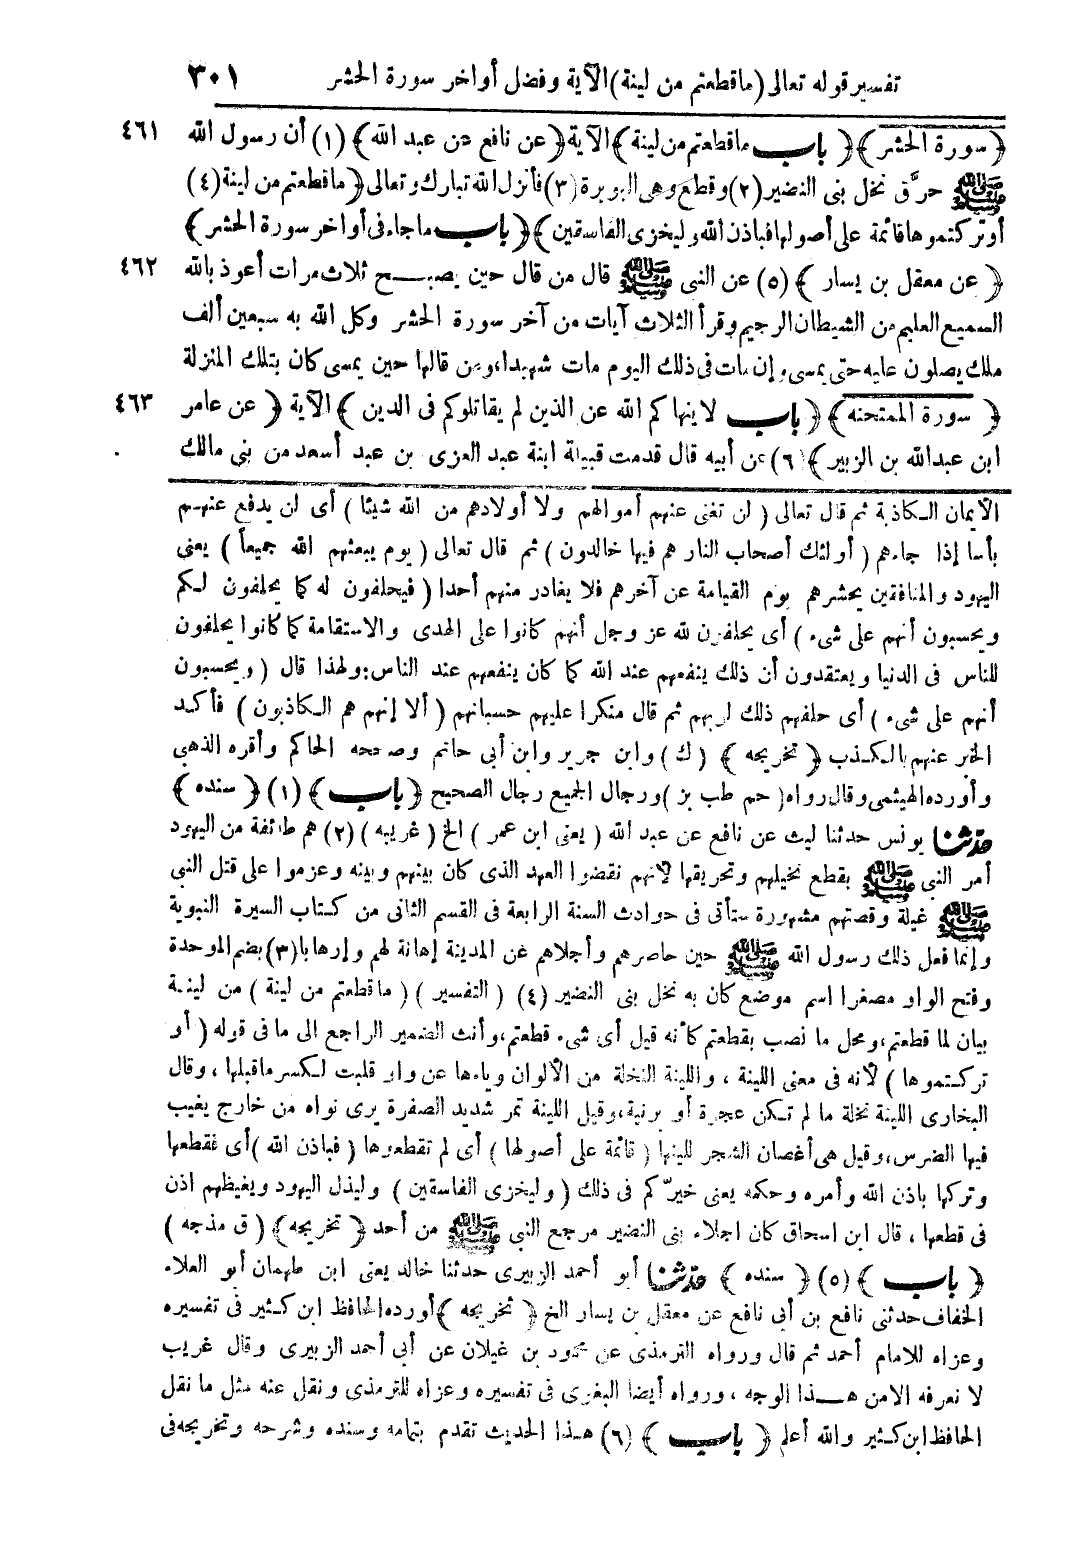 تفسير قوله تعالى (ما قطعتم من لينة) الآية وفضل أواخر سورة الحشر ٣٠١
﴿ سورة الحشر ﴾ ﴿ باب ما قطعتم من لينة ﴾ الآية ﴿ عن نافع عن عبد الله ﴾ (١) أن رسول الله ٤٦١
ﷺ حرّق نخل بنى النضير (٢) وقطع وهى البويرة (٣) فأنزل الله تبارك وتعالى ﴿ ما قطعتم من لينة (٤)
أو تركتموها قائمة على أصولها فباذن الله وليخزى الفاسقين ﴾ ﴿ باب ما جاء فى أواخر سورة الحشر ﴾
﴿ عن معقل بن يسار ﴾ (٥) عن النبى ﷺ قال من قال حين يصبح ثلاث مرات أعوذ بالله ٤٦٢
السميع العليم من الشيطان الرجيم وقرأ الثلاث آيات من آخر سورة الحشر وكل الله به سبعين ألف
ملك يصلون عليه حتى يمسى وإن مات فى ذلك اليوم مات شهيدا، ومن قالها حين يمسى كان بتلك المنزلة
﴿ سورة الممتحنه ﴾ ﴿ باب لا ينهاكم الله عن الذين لم يقاتلوكم فى الدين ﴾ الآية ﴿ عن عامر ٤٦٣
ابن عبدالله بن الزبير ﴾ (٦) عن أبيه قال قدمت قتيلة ابنة عبد العزى بن عبد أسعد من بنى مالك
الأيمان الكاذبة ثم قال تعالى ( لن تغنى عنهم أموالهم ولا أولادهم من الله شيئا ) أى لن يدفع عنهم
بأسا إذا جاءهم ( أولئك أصحاب النار هم فيها خالدون ) ثم قال تعالى ( يوم يبعثهم الله جميعاً ) يعنى
اليهود والمنافقين يحشرهم يوم القيامة عن آخرهم فلا يغادر منهم أحدا ( فيحلفون له كما يحلفون لكم
ويحسبون أنهم على شىء ) أى يحلفون لله عز وجل أنهم كانوا على الهدى والاستقامة كما كانوا يحلفون
للناس فى الدنيا ويعتقدون أن ذلك ينفعهم عند الله كما كان ينفعهم عند الناس: ولهذا قال ( ويحسبون
أنهم على شىء ) أى حلفهم ذلك لربهم ثم قال منكرا عليهم حسبانهم ( ألا إنهم هم الكاذبون ) فأكد
الخبر عنهم بالكذب ﴿ تخريجه ﴾ ( ك ) وابن جرير وابن أبى حاتم وصححه الحاكم وأقره الذهبى
وأورده الهيثمى وقال رواه ( حم طب بز ) ورجال الجميع رجال الصحيح ﴿ باب ﴾ (١) ﴿ سنده ﴾
حدثنا يونس حدثنا ليث عن نافع عن عبد الله ( يعنى ابن عمر ) الخ ﴿ غريبه ﴾ (٢) هم طائفة من اليهود
أمر النبى ﷺ بقطع نخيلهم وتحريقها لأنهم نقضوا العهد الذى كان بينهم وبينه وعزموا على قتل النبى
ﷺ غيلة وقصتهم مشهورة ستأتى فى حوادث السنة الرابعة فى القسم الثانى من كتاب السيرة النبوية
وإنما فعل ذلك رسول الله ﷺ حين حاصرهم وأجلاهم عن المدينة إهانة لهم وإرهابا (٣) بضم الموحدة
وفتح الواو مصغرا اسم موضع كان به نخل بنى النضير (٤) ( التفسير ) ( ما قطعتم من لينة ) من لينة
بيان لما قطعتم، ومحل ما نصب بقطعتم كأنه قيل أى شىء قطعتم، وأنث الضمير الراجع الى ما فى قوله ( أو
تركتموها ) لأنه فى معنى اللينة ، واللينة النخلة من الألوان وياءها عن واو قلبت لكسر ما قبلها ، وقال
البخارى اللينة نخلة ما لم تكن عجوة أو برنية، وقيل اللينة تمر شديد الصفرة يرى نواه من خارج يغيب
فيها الضرس، وقيل هى أغصان الشجر للينها ( قائمة على أصولها ) أى لم تقطعوها ( فباذن الله ) أى فقطعها
وتركها باذن الله وأمره وحكمه يعنى خيرّكم فى ذلك ( وليخزى الفاسقين ) وليذل اليهود ويغيظهم اذن
فى قطعها ، قال ابن اسحاق كان اجلاء بنى النضير مرجع النبى ﷺ من أحد ﴿ تخريجه ﴾ ( ق مذجه )
﴿ باب ﴾ (٥) ﴿ سنده ﴾ حدثنا أبو أحمد الزبيرى حدثنا خالد يعنى ابن طهمان أبو العلاء
الخفاف حدثنى نافع بن أبى نافع عن معقل بن يسار الخ ﴿ تخريجه ﴾ أورده الحافظ ابن كثير فى تفسيره
وعزاه للامام أحمد ثم قال ورواه الترمذى عن محمود بن غيلان عن أبى أحمد الزبيرى وقال غريب
لا نعرفه الا من هذا الوجه ، ورواه أيضا البغوى فى تفسيره وعزاه للترمذى ونقل عنه مثل ما نقل
الحافظ ابن كثير والله أعلم ﴿ باب ﴾ (٦) هذا الحديث تقدم بتمامه وسنده وشرحه وتخريجه فى